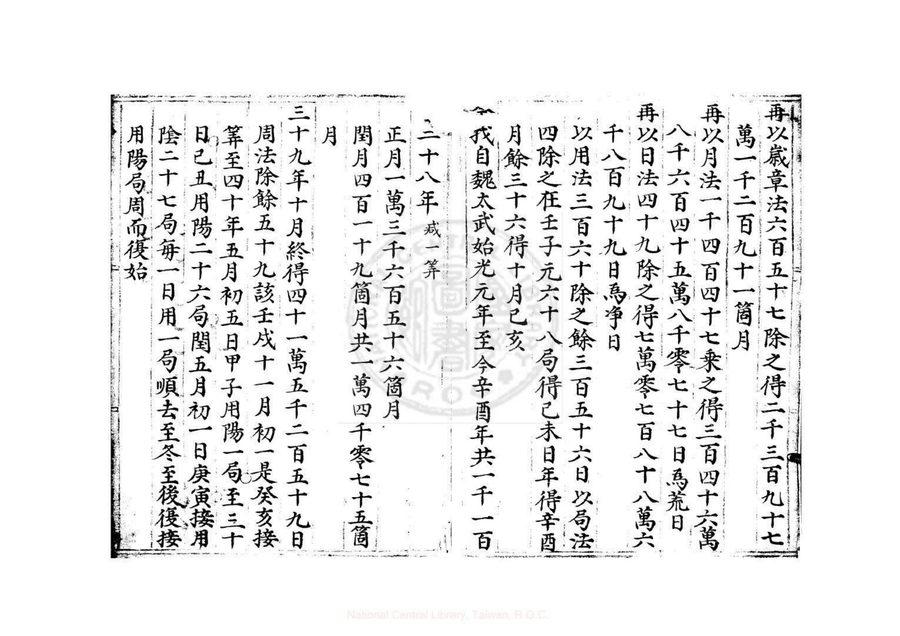 再以歲章法六百五十七除之得二千三百九十七
萬一千二百九十一箇月
再以月法一千四百四十七乘之得三百四十六萬
八千六百四十五萬八千零七十七日爲荒日
再以日法四十九除之得七萬零七百八十八萬六
千八百九十九日爲淨日
以用法三百六十除之餘三百五十六日以局法
四除之在壬子元六十八局得己未日年得辛酉
月餘三十六得十月己亥
找自魏太武始光元年至今辛酉年共一千一百
二十八年 減一筭
正月一萬三千六百五十六箇月
閏月四百一十九箇月共一萬四千零七十五箇
月
三十九年十月終得四十一萬五千二百五十九日
周法除餘五十九該壬戌十一月初一是癸亥接
筭至四十年五月初五日甲子用陽一局至三十
日己丑用陽二十六局閏五月初一日庚寅接用
陰二十七局每一日用一局順去至冬至後復接
用陽局周而復始
National Central Library, Taiwan, R.O.C.